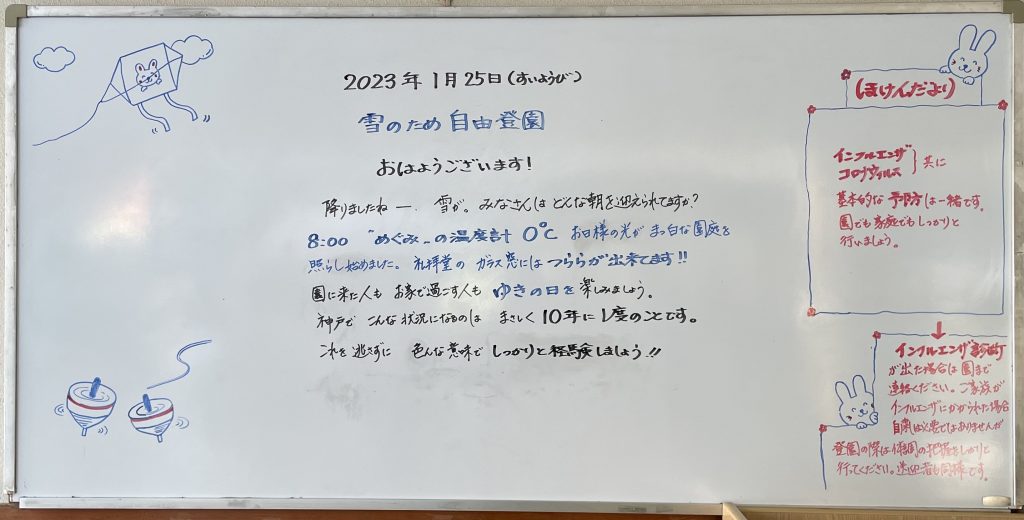 2023年 1月25日(すいようび)
雪のため 自由登園
おはようございます!
降りましたねー. 雪が。みなさんは どんな朝を迎えられてますか?
8:00 "めぐみ„の温度計 0℃ お日様の光が まっ白な園庭を
照らし始めました。礼拝堂の ガラス窓には つららが出来てます!!
園に来た人も お家で過ごす人も ゆきの日を 楽しみましょう。
神戸で こんな状況になるのは まさしく 10年に1度のことです。
これを 逃さずに 色んな意味で しっかりと経験しましょう!!
ほけんだより
インフルエンザ
コロナウィルス
共に
基本的な 予防は一緒です。
園でも家庭でもしっかりと
行いましょう。
↓
インフルエンザ診断
が出た場合は園まで
連絡ください。ご家族が
インフルエンザにかかられた場合
自粛は必要ではありませんが
登園の際は体調の把握をしっかりと
行ってください。送迎者も同様です。